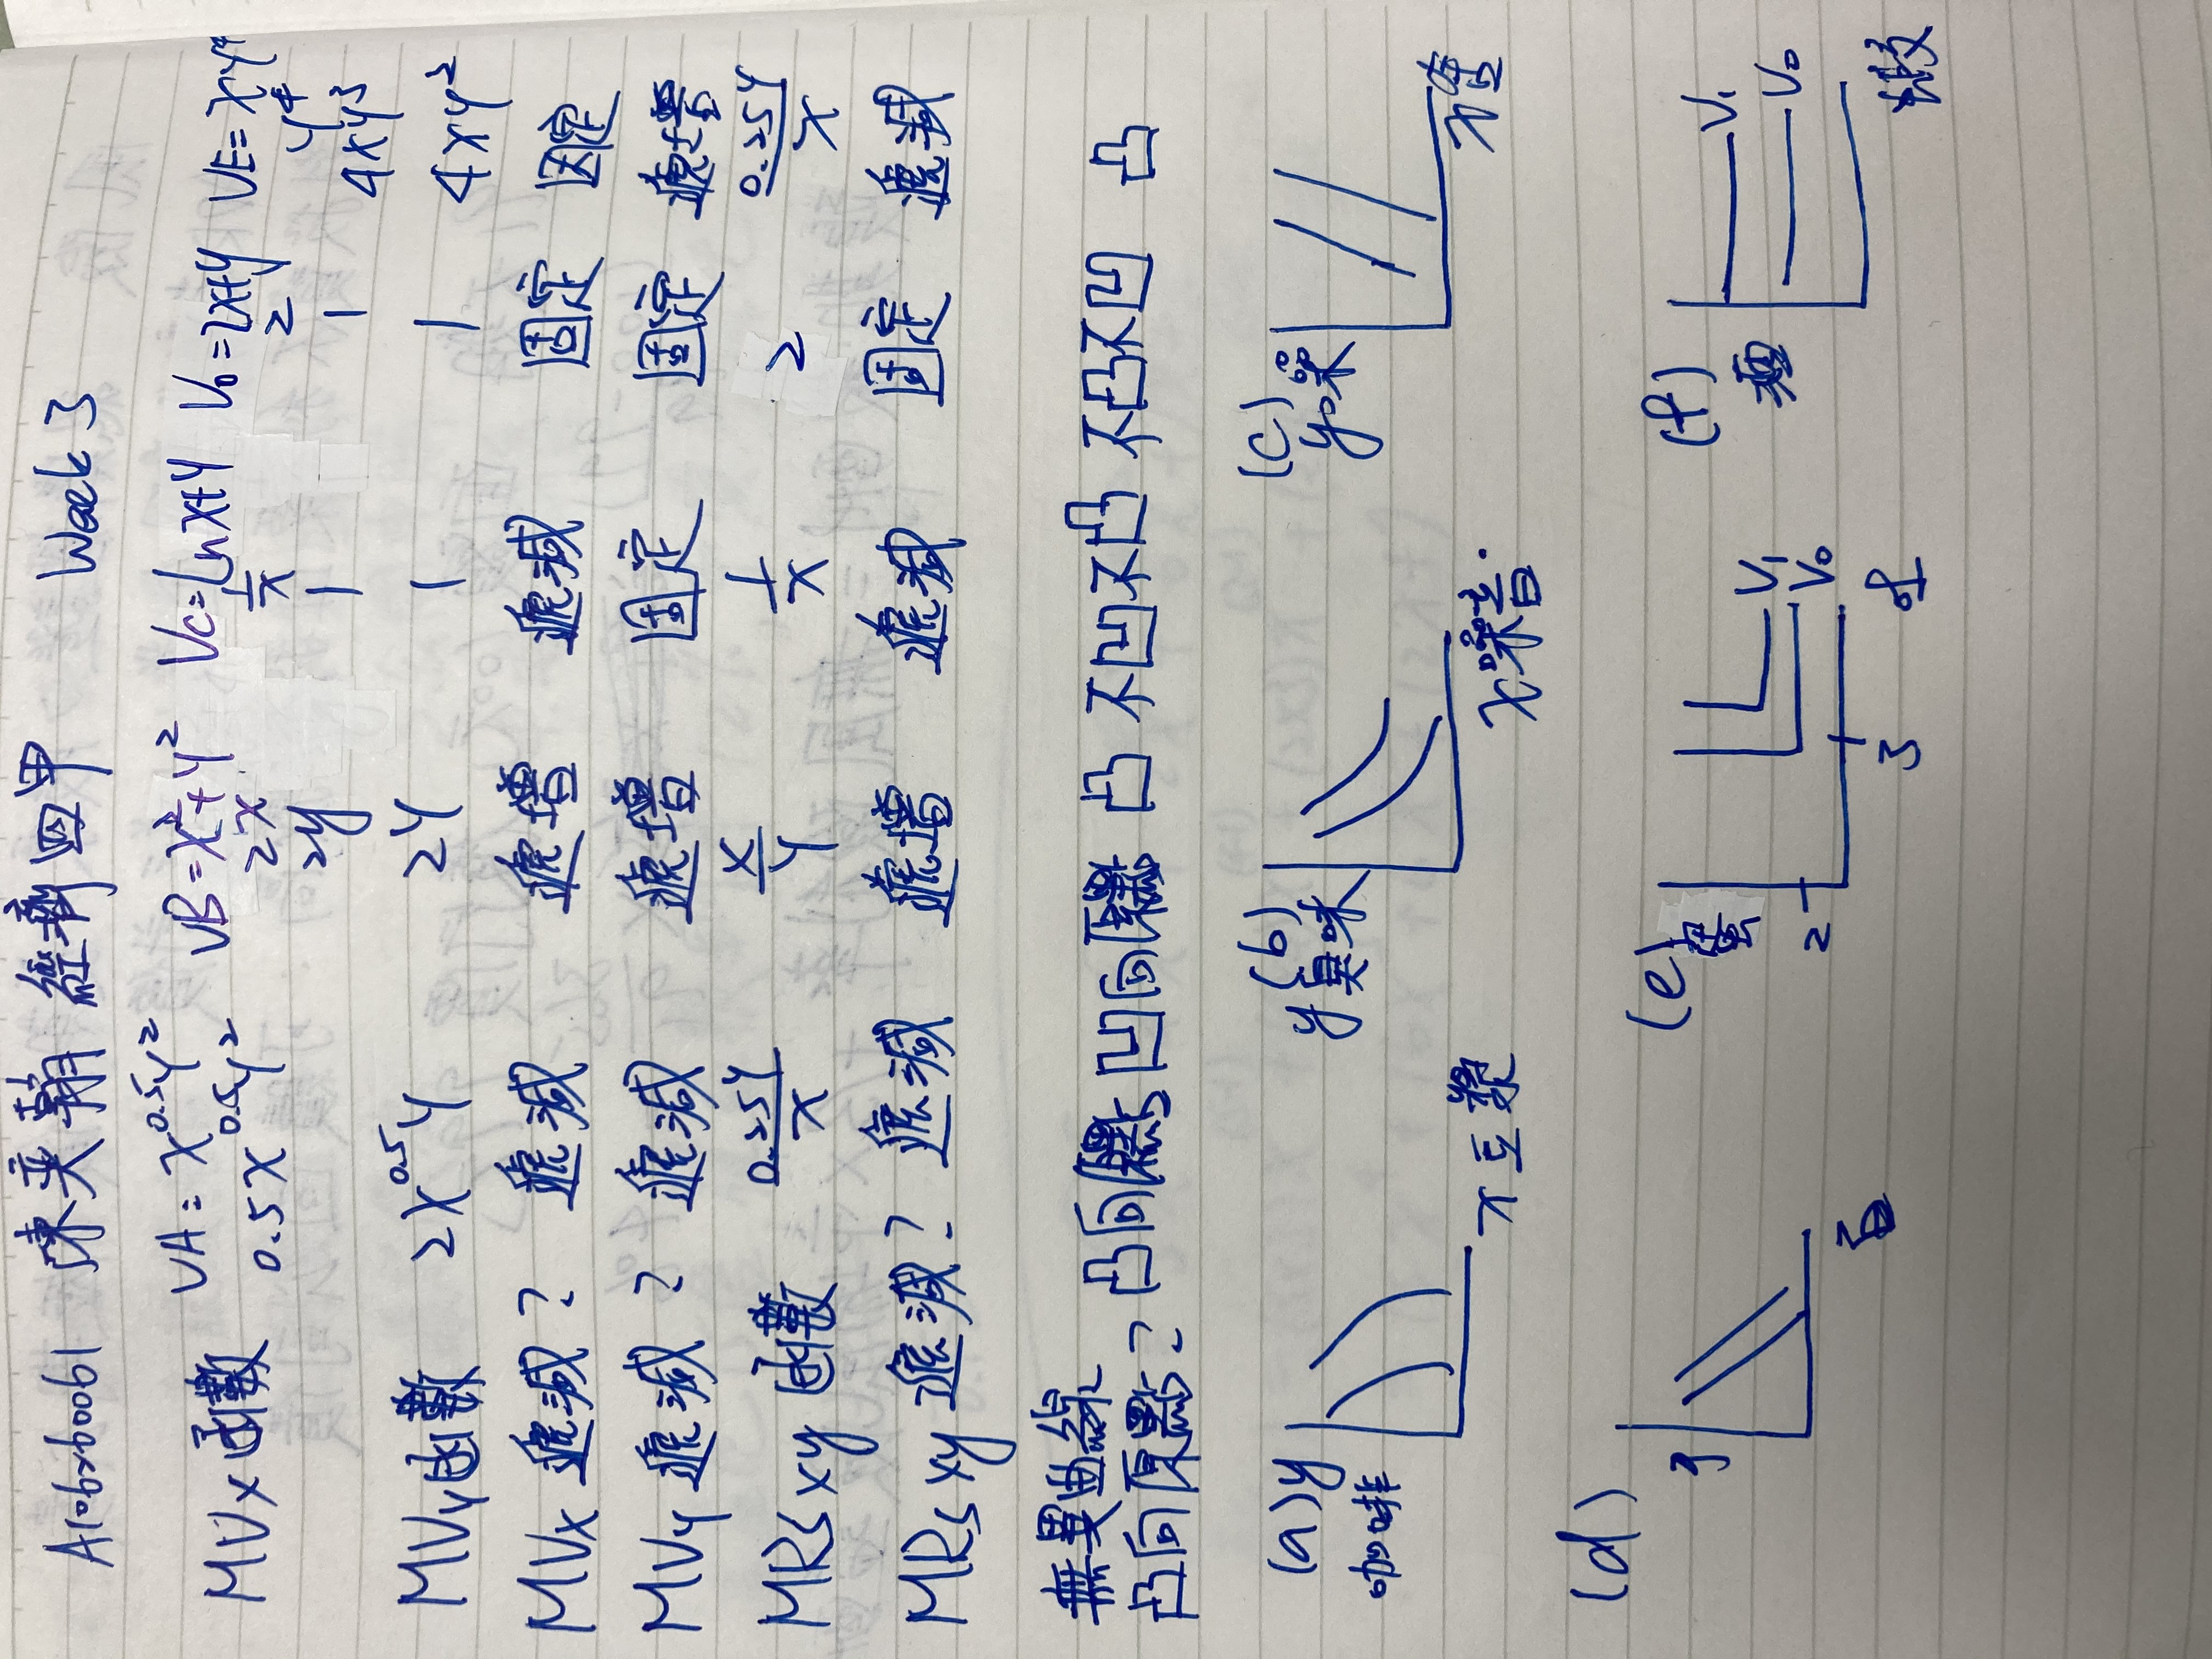 A106260061 陳奕翰 經濟四甲 Week 3
UA = x^0.5y^2 UB = x^2+y^2 Uc = Lnx+y U0 = 2x+y UE = xy^4
MUx函數 0.5x^0.5y^2 2x 1/x 2 y^4
2y 1 1 4xy^3
MUy函數 2x^0.5y 2y 1 1 4xy^2
MUx 遞減? 遞減 遞增 遞減 固定 固定
MUy 遞減? 遞減 遞增 固定 固定 遞增
MRSxy 函數 0.25y/x x/y 1/x 2 0.25y/x
MRSxy 遞減? 遞減 遞增 遞減 固定 遞減
無異曲線
凸向原點? 凸向原點 凹向原點 凸 不凹不凸 不凸不凹 凸
(a) y 咖啡 x 豆漿
(b) y 臭味 x 噪音
(c) y 噪 x
(d)
(e) 蛋 2 3 U1 U0
(f) 酒 U1 U0 蝦